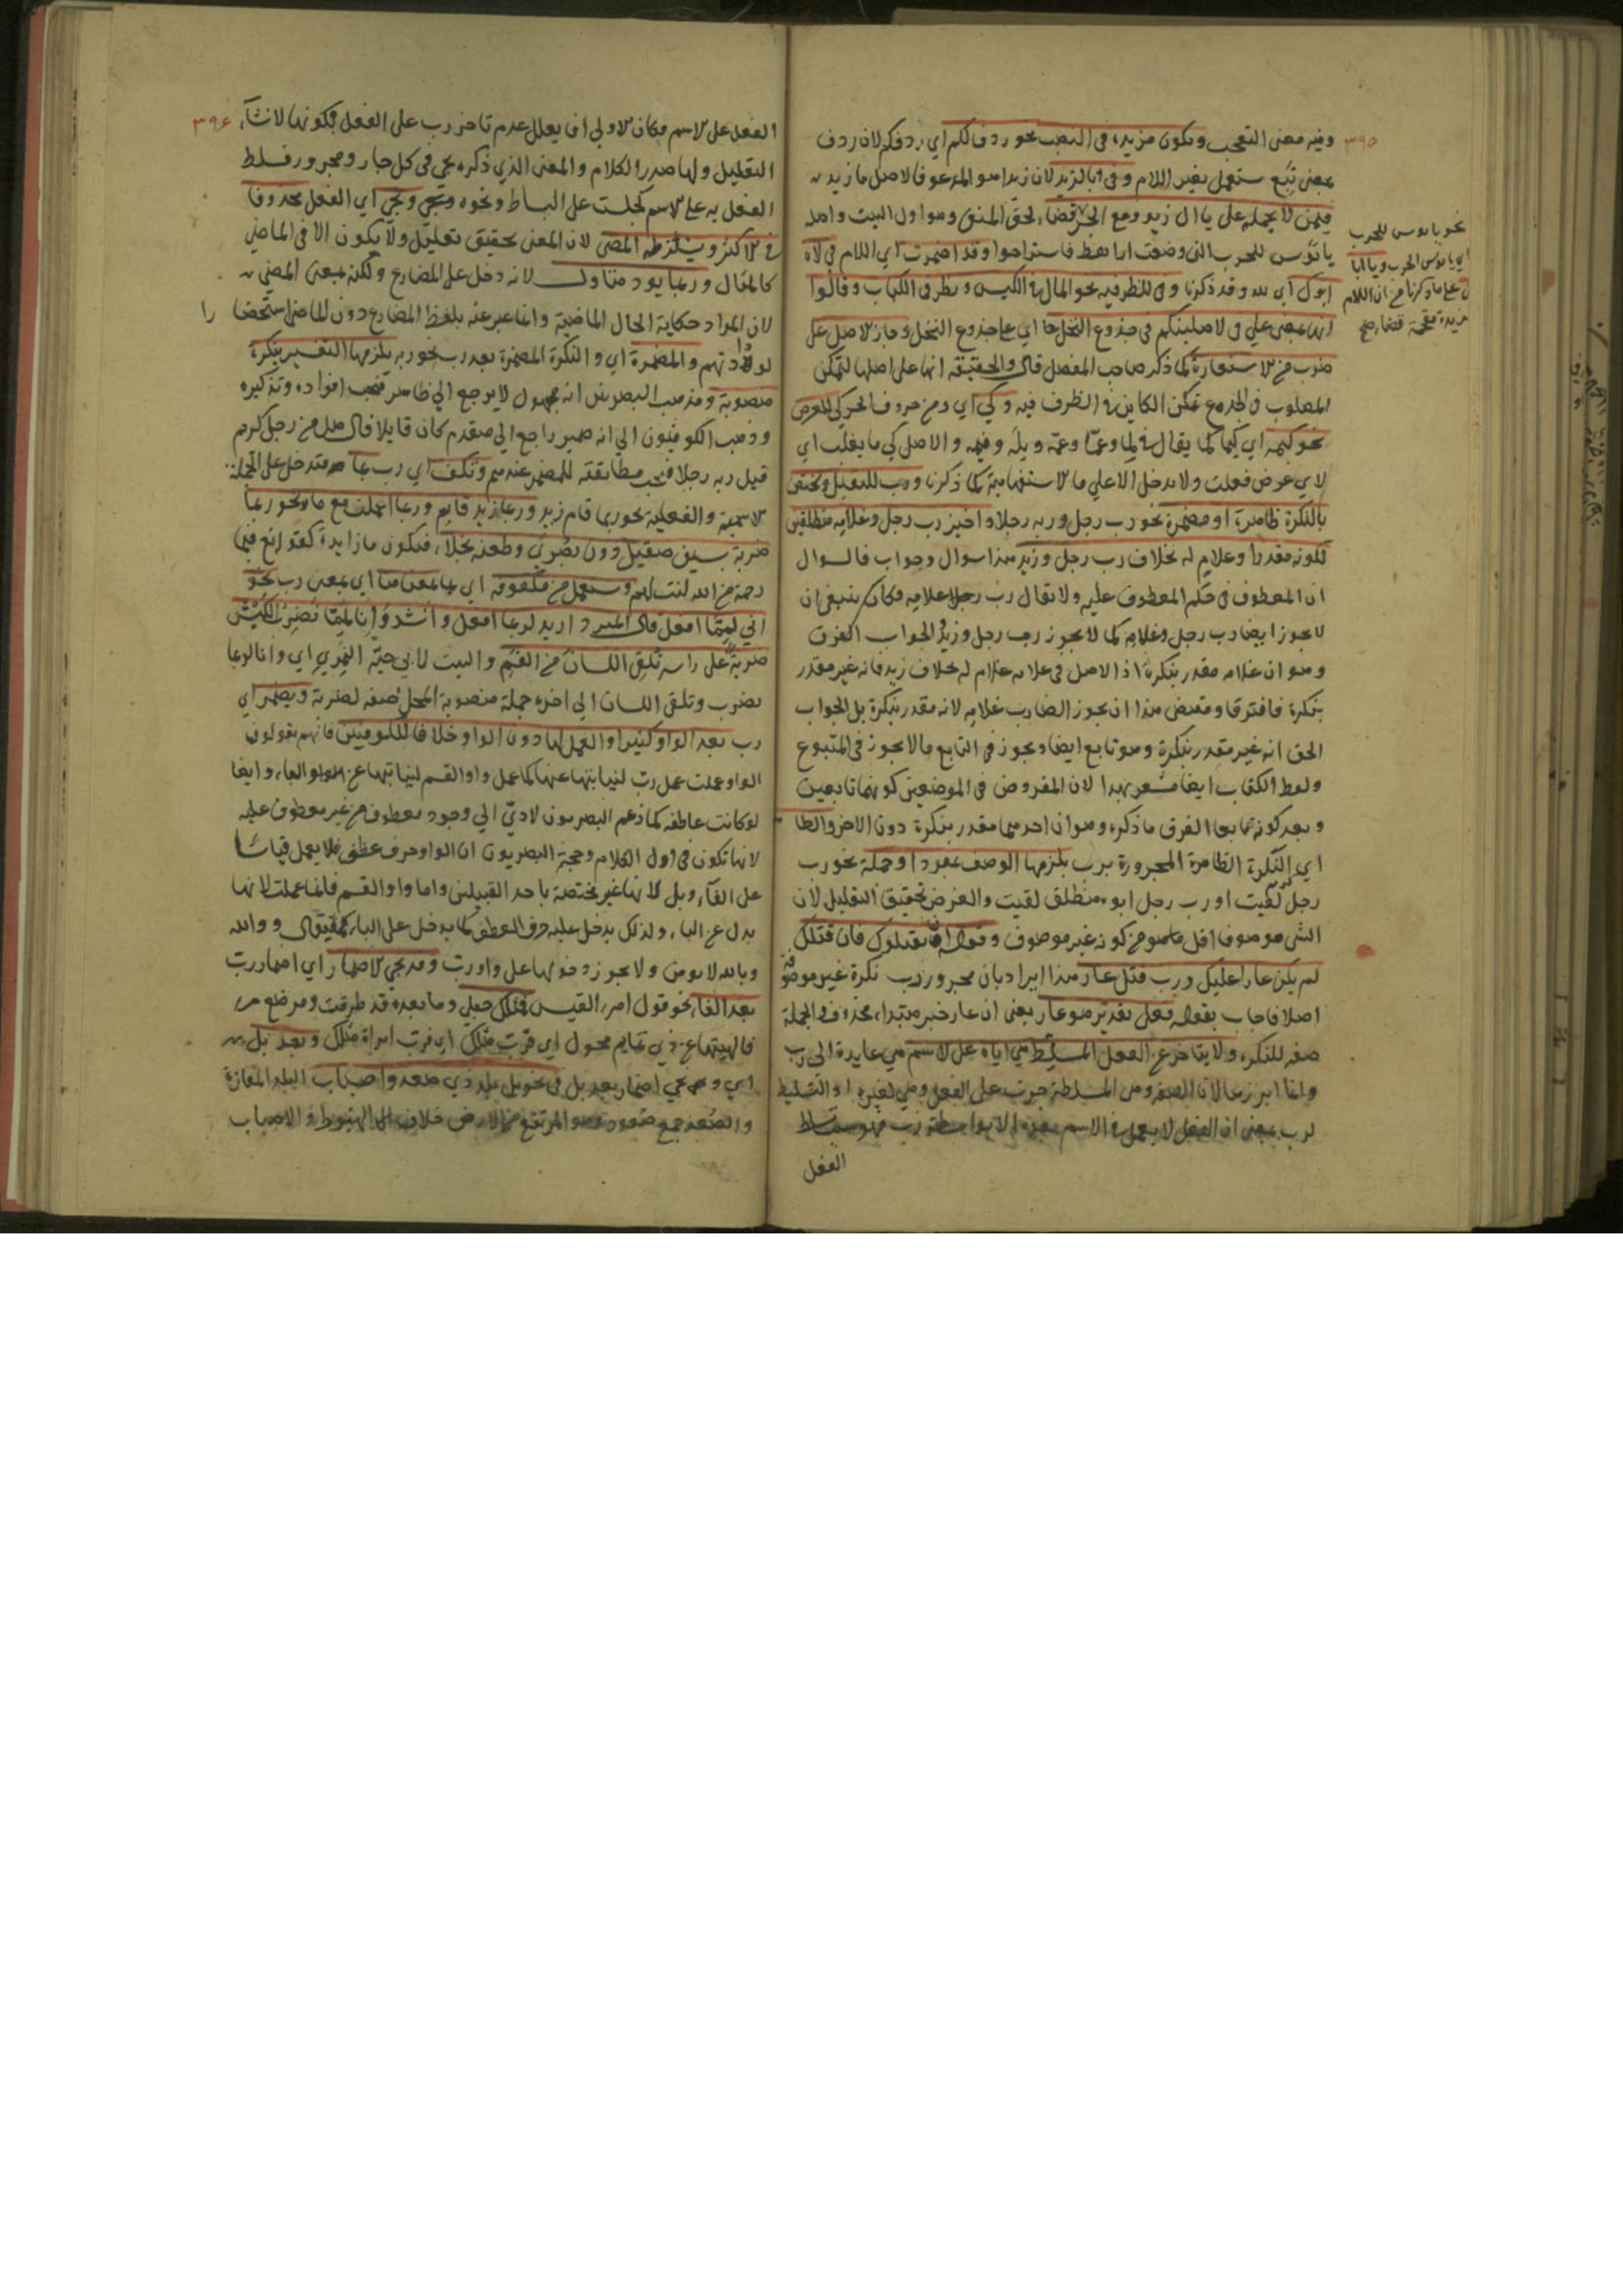 ٣٩٥
وفيه معنى التعجب وتكون مزيدة في النصب نحو ردف لكم اي ردفكم لان ردف
بمعنى تبع يستعمل بغير اللام وفي يا لزيد لان زيدا هو المدعو فالاصل يا زيد
فيمن لا يحمله على يا ال زيد ومع الجر قضاء لحق
يا بؤس للحرب التي وضعت اراهط فاستراحوا وقد اضمرت اي اللام في لاه
ابوك اي لله وقد ذكرنا وفي للظرفيه نحو المال في الكيس ونظر في الكتاب وقالوا
انها بمعنى على في لاصلبنكم في جذوع النخل اي على جذوع النخل
ضرب من الاستعارة كما ذكر صاحب المفصل قال والحقيقة انها على اصلها لتمكن
المصلوب في الجذوع تمكن الكاين في الظرف فيه وكي اي ومن حروف الجر كي للغرض
نحو كيمه اي كيما كما يقال في لما وعما وعمه ولمه وفيمه والاصل كي ما يفعلت اي
لاي غرض فعلت ولا يدخل الا على ما الاستفهامية كما ذكرنا ورب للتقليل وتختص
بالنكرة ظاهرة او مضمرة نحو رب رجل وربه رجلا واخير رب رجل وغلامه منطلقين
لكونه مقدرا وغلام له بخلاف رب رجل وزيد هذا سوال وجواب فالسوال
ان المعطوف في حكم المعطوف عليه ولا يقال رب غلامه فكان ينبغي ان
لا يجوز ايضا رب رجل وغلامه كما لا يجوز رب رجل وزيد والجواب الفرق
وهو ان غلامه مقدر بنكرة اذ الاصل في غلامه غلام له بخلاف زيد فانه غير مقدر
بنكرة فافترقا ومقتضى هذا ان يجوز الضارب غلامه لانه مقدر بنكرة بل الجواب
الحق انه غير مقدر بنكرة وهو تابع ايضا ويجوز في التابع ما لا يجوز في المتبوع
ولفظ الكتاب ايضا مشعر بهذا لان المفروض في الموضعين كونهما تابعين
وبعد كونهما تابعا الفرق ما ذكره وهو ان احدهما مقدر بنكرة دون الاخر والظا
اي النكرة الظاهرة المجرورة برب يلزمها الوصف بمفرد او جملة نحو رب
رجل كريم لقيت او رب رجل ابوه منطلق لقيت والغرض تحقيق التقليل لان
الشي موصوفا اقل ما هو من كونه غير موصوف وقوله ان يقتلوك فان قتلك
لم يكن عارا عليك ورب قتل عار هذا ايراد بان مجرور رب نكرة غير موصوفة
اصلا فاجاب بقوله فعل تقدير هو عار يعني ان عار خبر مبتداء محذوف والجملة
صفه للنكره ولا يتاخر عن الفعل المسلط هي اياه على الاسم هي عايدة الى رب
وانما ابرزها لان الصفه وهي المسلطة جرت على الفعل وهي لغيره اذ التسليط
لرب بمعنى ان الفعل لا يعمل في الاسم الا بواسطة رب
الفعل
نحو يا بوس للحرب
اي يا بوس الحرب ويا ابا
على ما ذكرنا من ان اللام
مزيدة مقحمة قضاء صح
٣٩٦
الفعل على الاسم فكان الاولى ان يعلل عدم تاخر رب على الفعل بكونها لانشاء
التقليل ولها صدر الكلام والمعنى الذي ذكره يجي في كل جار ومجرور فسلط
الفعل به على الاسم كجلست على البساط ونحوه ويجي ويجي اي الفعل محذوفا
في الاكثر ويلزمه المضي لان المعنى تحقيق تعليل ولا يكون الا في الماضي
كالمثال وربما يود متاول لانه دخل على المضارع ولكنه بمعنى المضي
لان المراد حكاية الحال الماضية وانما عبر عنه بلفظ المضارع دون الماضي استحضا را
والمضمرة اي والنكرة المضمرة بعد رب نحو ربه يلزمها التفسير بنكرة
منصوبة ومذهب البصريين انه مجهول لا يرجع الى ظاهر فيجب افراده وتذكيره
وذهب الكوفيون الى انه ضمير راجع الى متقدم كان قايلا قال هل من رجل كريم
قيل ربه رجلا فيجب مطابقته للمضمر عندهم وتكف اي رب بما فتدخل على الجملة
الاسمية والفعلية نحو ربما قام زيد وربما زيد قايم وربما اعملت مع ما نحو ربما
ضربة بسيف صقيل دون بصرى وطعنه نجلاء فتكون ما زايدة كقوله فبما
رحمة من الله لنت لهم وتستعمل من مكفوفه اي بما بمعناها اي بمعنى رب نحو
اني لمما افعل قال المبرد اريد لربما افعل وانشدوا انا لمما نضرب الكبش
ضربة على راسه تلقى اللسان من الفم والبيت لابي حية النميري اي وانا لربما
نضرب وتلقى اللسان الى اخره جملة منصوبة المحل صفه لضربة ويضمر اي
رب بعد الواو كثيرا والعمل لها دون الواو خلافا للكوفيين فانهم يقولون
الواو عملت عمل رب لنيابتها عنها كما عمل واو القسم لنيابتها عن الباء وايضا
لو كانت عاطفه كما زعم البصريون لادى الى وجود معطوف من غير معطوف عليه
لانها تكون في اول الكلام وحجة البصريون ان الواو حرف عطف فلا يعمل قياسا
على الفاء وبل لانها غير مختصة باحد القبيلين واما واو القسم فانما عملت لانها
بدل عن الباء ولذلك يدخل عليه حرف العطف كما يدخل على الباء ووالله
وبالله لا يومن ولا يجوز دخولها على واو رب وقد يجي الاضمار اي اضمار رب
بعد الفاء نحو قول امرء القيس فمثلك حبلى وما بعده قد طرقت ومرضع
فالهيتها عن ذي تمايم محول اي فرب مثلك اي فرب امراة مثلك وبعد بل
اي وقد يجي اضمار بعد بل في نحو بل بلد ذي صعد واصباب البلد المفازة
والصعد جمع صعود وهو المرتفع من الارض خلاف الهبوط والاصباب